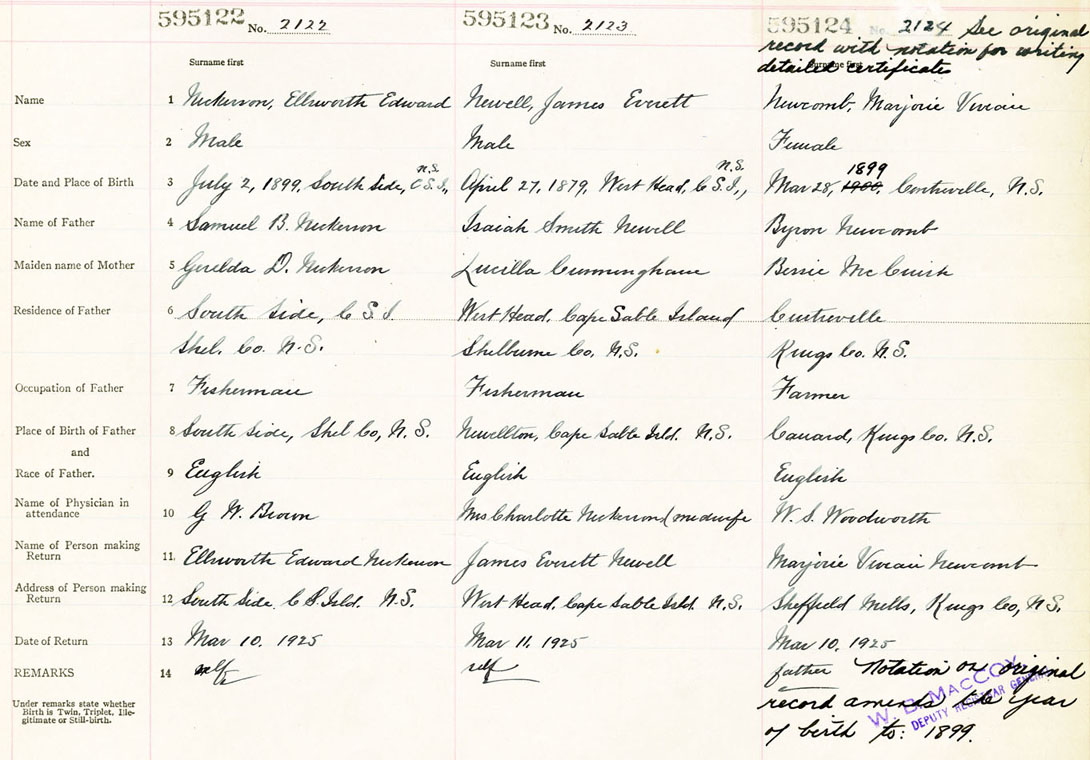 595122 No. 2122 595123 No. 2123 595124 No. 2124 See original
record with notation for writing
Surname first Surname first Surname first
detailed certificate
Name 1 Nickerson, Ellsworth Edward Newell, James Everett Newcomb, Marjorie Vivian
Sex 2 Male Male Female
N.S. N.S. 1899
Date and Place of Birth 3 July 2, 1899, South Side, C.S.I., April 27, 1879, West Head, C.S.I., Mar 28, 1900, Centreville, N.S.
Name of Father 4 Samuel B. Nickerson Isaiah Smith Newell Byron Newcomb
Maiden name of Mother 5 Gerelda D. Nickerson Lucilla Cunningham Bessie McCuish
Residence of Father 6 South Side, C S I. West Head, Cape Sable Island Centreville
Shel. Co. N.S. Shelburne Co, N.S. Kings Co. N.S.
Occupation of Father 7 Fisherman Fisherman Farmer
Place of Birth of Father 8 South Side, Shel Co, N.S. Newellton, Cape Sable Isld. N.S. Canard, Kings Co. N.S.
and
Race of Father. 9 English English English
Name of Physician in
attendance 10 G W. Brown Mrs Charlotte Nickerson (midwife W. S. Woodworth
Name of Person making
Return 11. Ellsworth Edward Nickerson James Everett Newell Marjorie Vivian Newcomb
Address of Person making
Return 12 South Side. C.S. Isld. N.S. West Head, Cape Sable Isld. N.S. Sheffield Mills, Kings Co, N.S.
Date of Return 13 Mar 10. 1925 Mar 11. 1925 Mar 10, 1925
REMARKS 14 self self father Notation on original
Under remarks state whether
Birth is Twin, Triplet, Ille-
gitimate or Still-birth.
record amends the year
W. B. MacCOY
DEPUTY REGISTRAR GENERAL
of birth to: 1899.